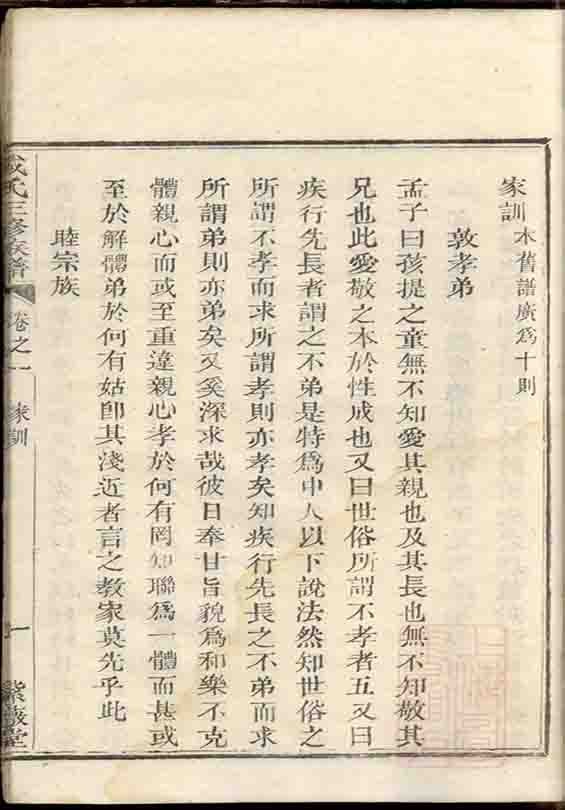 家訓 本舊譜廣爲十則
敦孝弟
孟子曰孩提之童無不知愛其親也及其長也無不知敬其
兄也此愛敬之本於性成也又曰世俗所謂不孝者五又曰
疾行先長者謂之不弟是特爲中人以下說法然知世俗之
所謂不孝而求所謂孝則亦孝矣知疾行先長之不弟而求
所謂弟則亦弟矣又奚深求哉彼日奉甘旨貌爲和樂不克
體親心而或至重違親心孝於何有罔知聯爲一體而甚或
至於解體弟於何有姑卽其淺近者言之教家莫先乎此
睦宗族
氏三修族譜
卷之一
家訓
一
紫薇堂